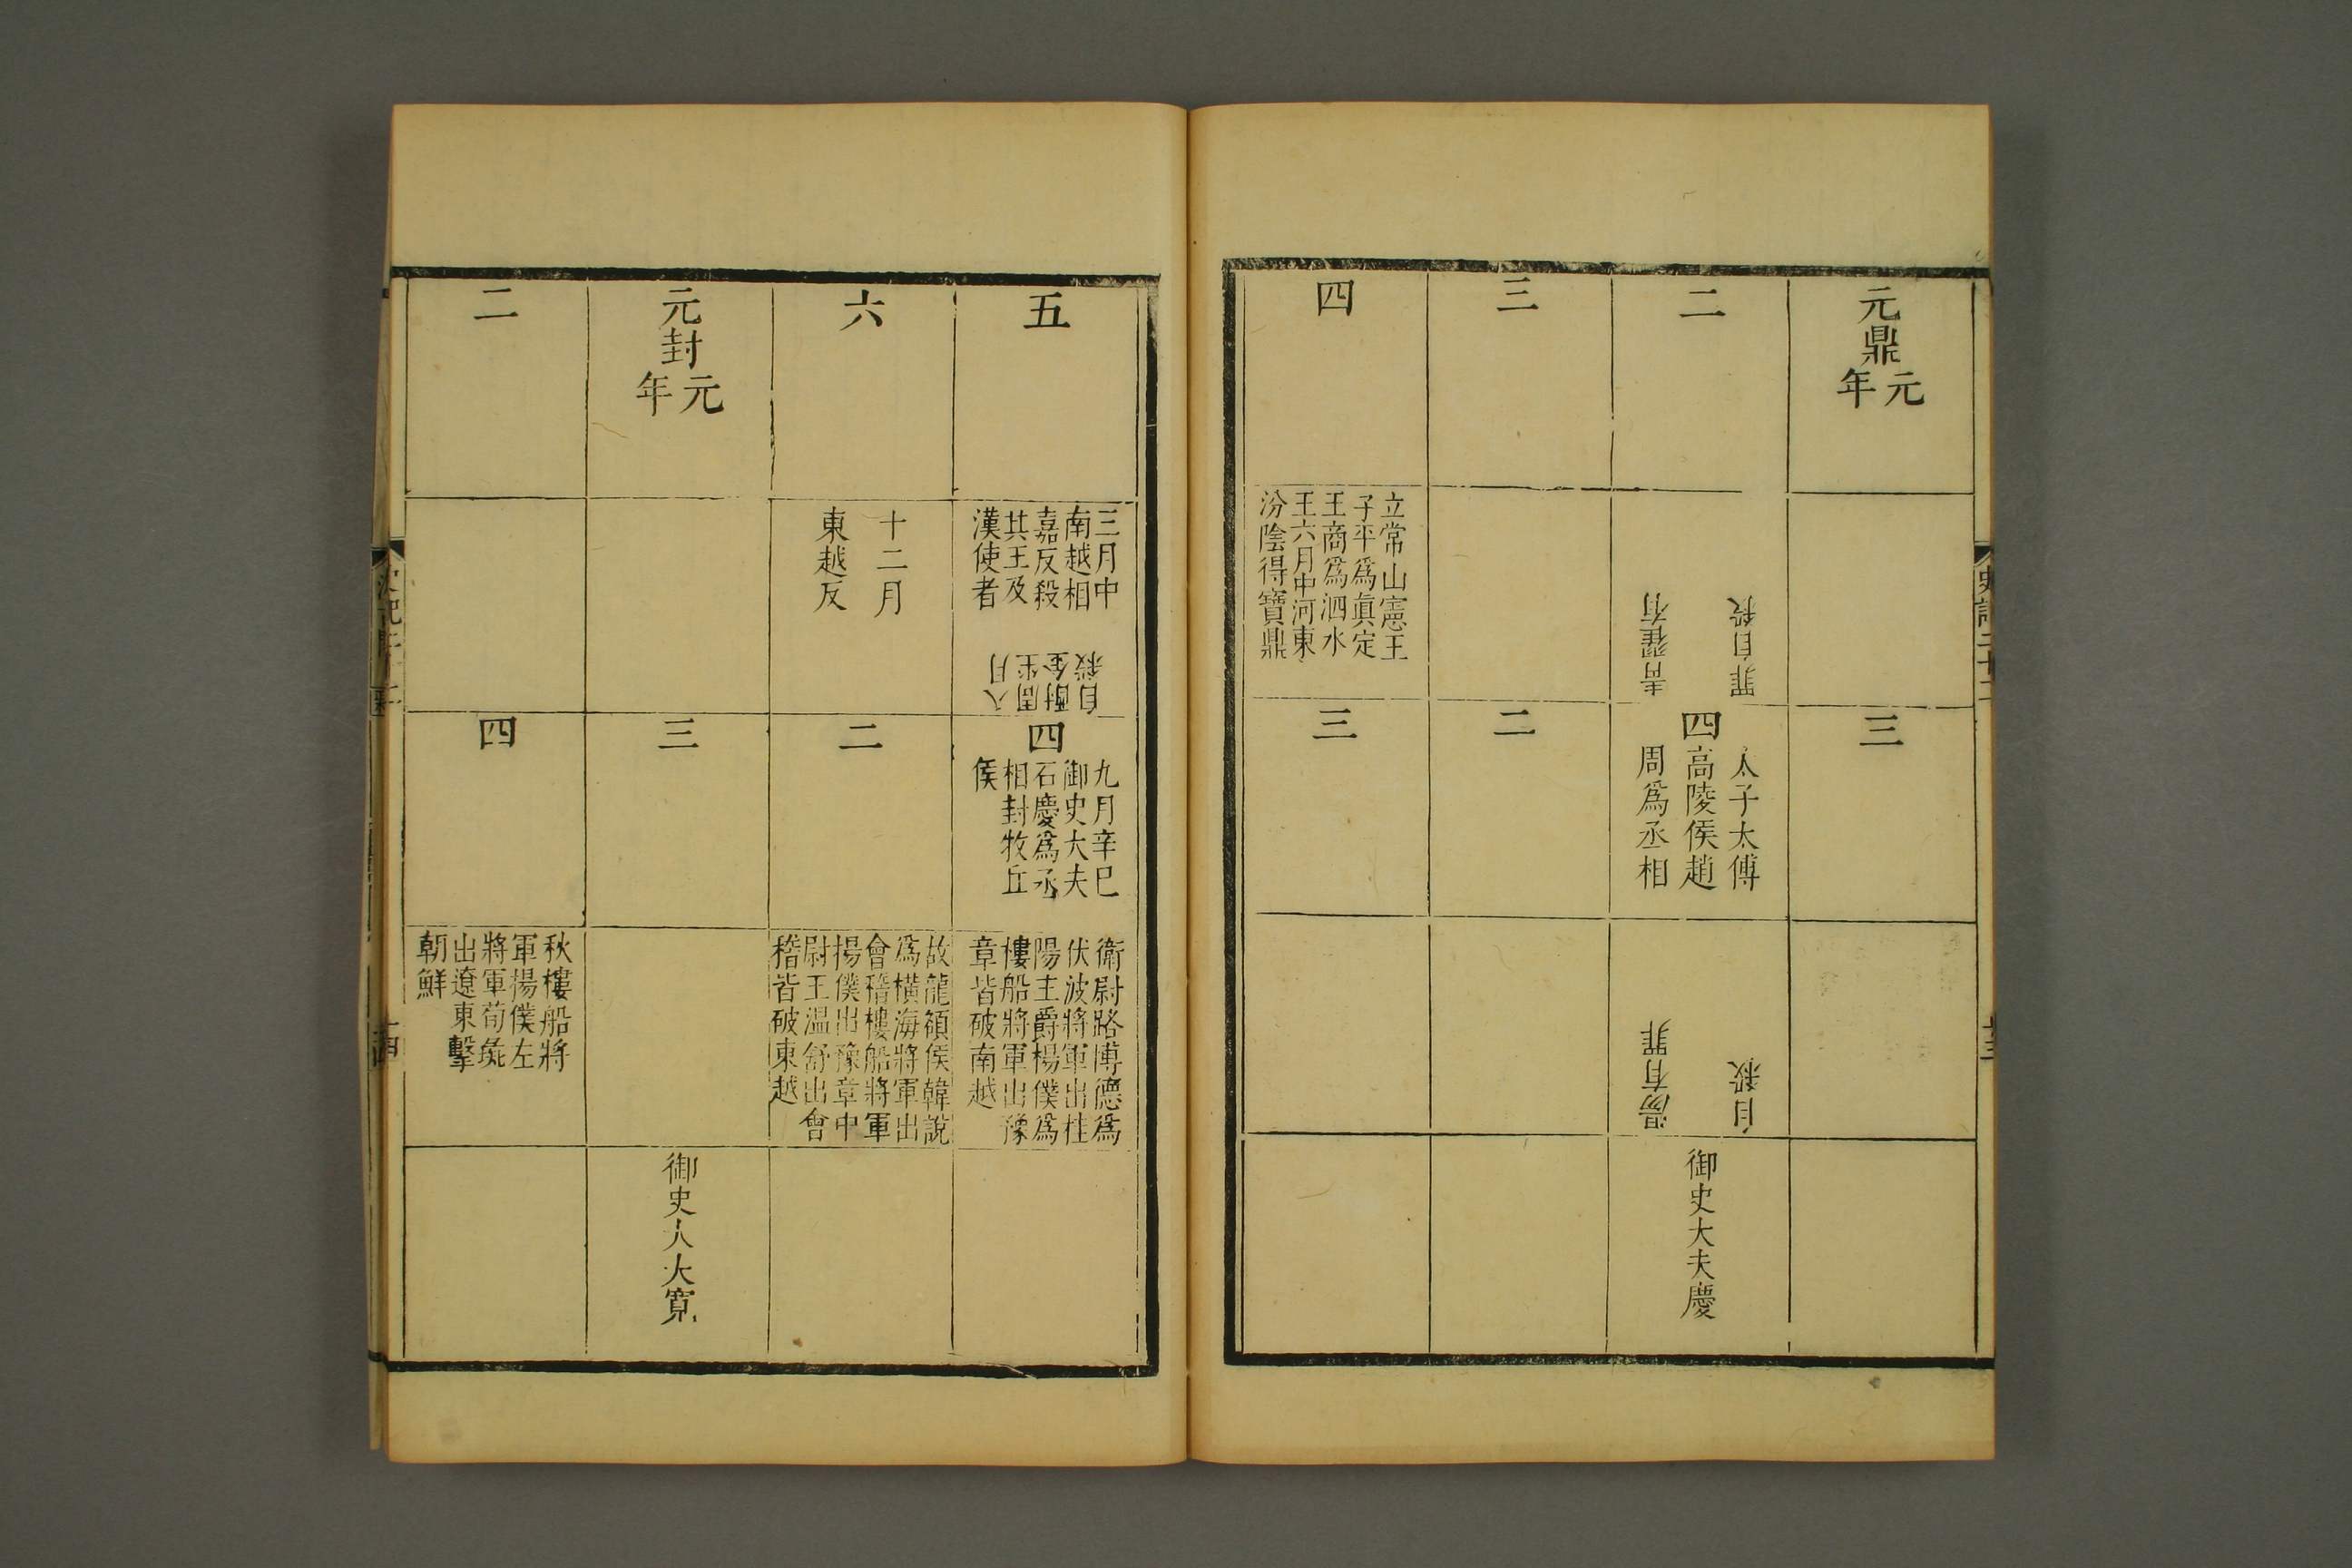 史記二十二
元鼎
元
年
三
二
青翟有
罪自殺
四
太子太傅
高陵侯趙
周爲丞相
湯有罪
自殺
御史大夫慶
三
二
四
立常山憲王
子平爲眞定
王商爲泗水
王六月中河東
汾陰得寶鼎
三
五
三月中
南越相
嘉反殺
其王及
漢使者
八月
周坐
酎金
自殺
四
九月辛巳
御史大夫
石慶爲丞
相封牧丘
侯
衛尉路博德爲
伏波將軍出桂
陽主爵楊僕爲
樓船將軍出豫
章皆破南越
六
十二月
東越反
二
故龍頟侯韓說
爲橫海將軍出
會稽樓船將軍
揚僕出豫章中
尉王温舒出會
稽皆破東越
元封
元
年
三
御史大夫寬
二
四
秋樓船將
軍揚僕左
將軍荀彘
出遼東擊
朝鮮